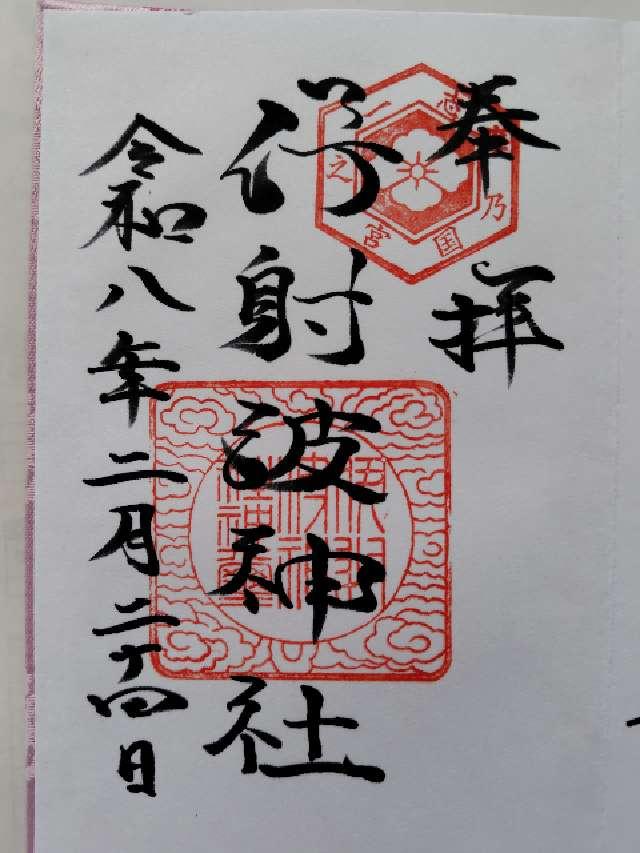 奉拝
乃国
一之宮
伊射波神社
令和八年二月二十四日